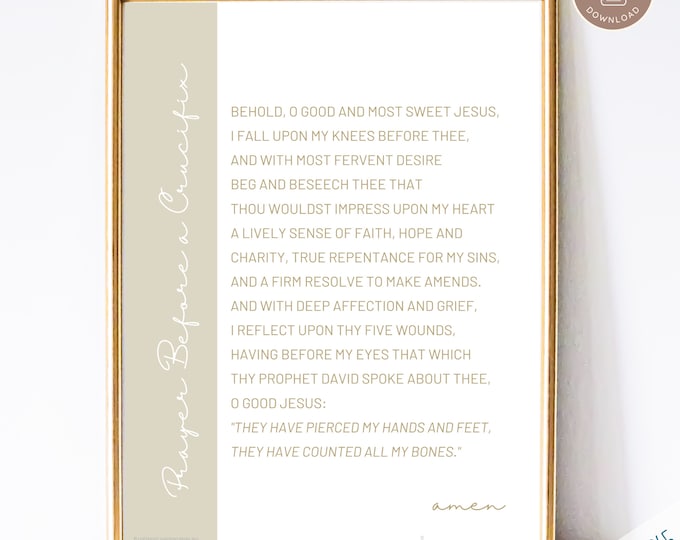 DOWNLOAD
Prayer Before a Crucifix
BEHOLD, O GOOD AND MOST SWEET JESUS,
I FALL UPON MY KNEES BEFORE THEE,
AND WITH MOST FERVENT DESIRE
BEG AND BESEECH THEE THAT
THOU WOULDST IMPRESS UPON MY HEART
A LIVELY SENSE OF FAITH, HOPE AND
CHARITY, TRUE REPENTANCE FOR MY SINS,
AND A FIRM RESOLVE TO MAKE AMENDS.
AND WITH DEEP AFFECTION AND GRIEF,
I REFLECT UPON THY FIVE WOUNDS,
HAVING BEFORE MY EYES THAT WHICH
THY PROPHET DAVID SPOKE ABOUT THEE,
O GOOD JESUS:
"THEY HAVE PIERCED MY HANDS AND FEET,
THEY HAVE COUNTED ALL MY BONES."
amen